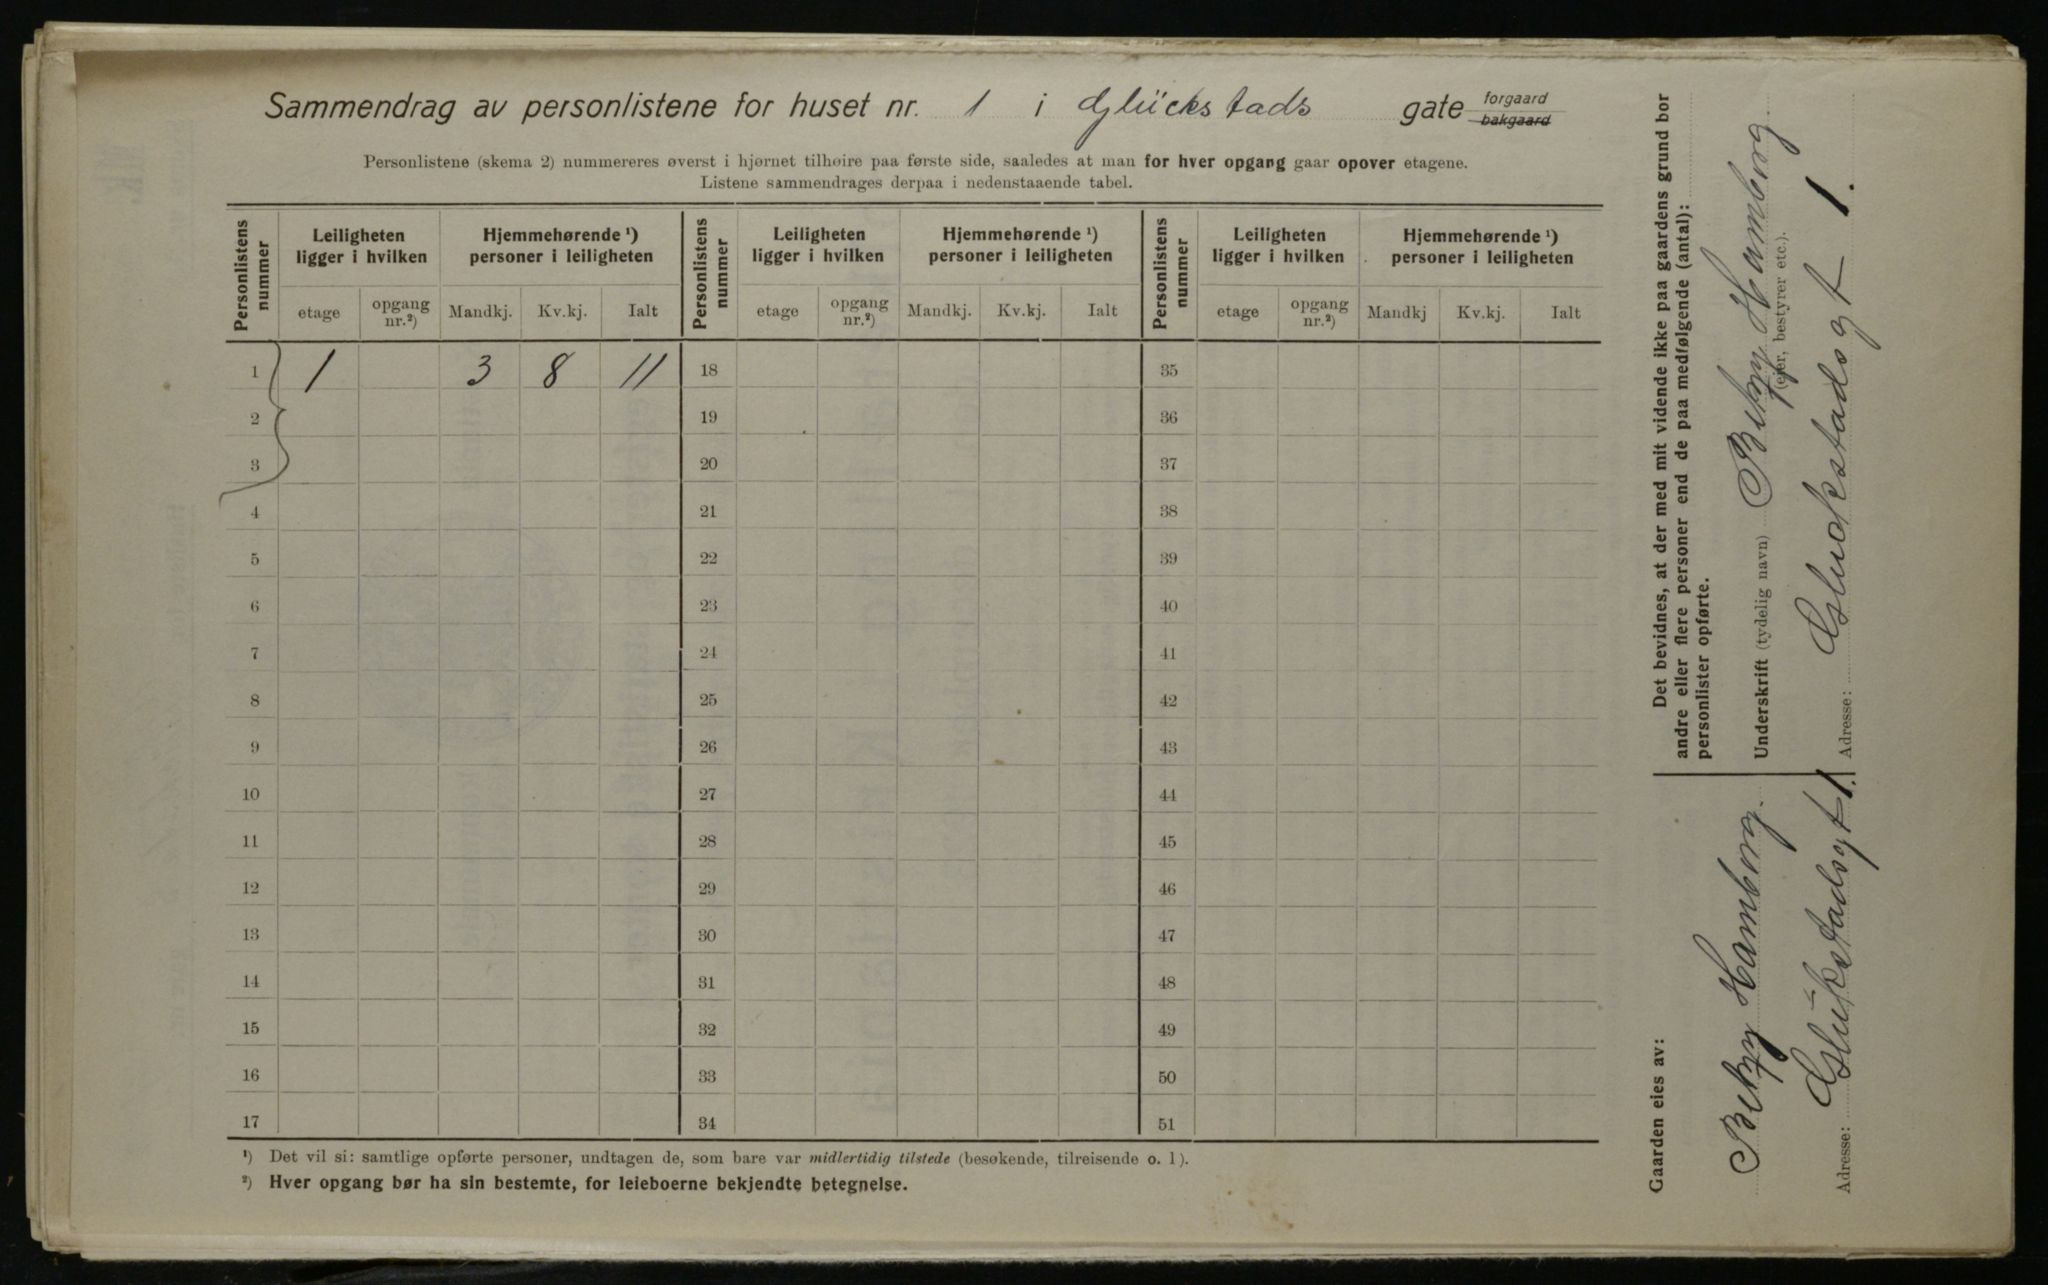 Sammendrag av personlistene for huset nr. 1 i Glückstads gate forgaard bakgaard
Personlistene (skema 2) nummereres øverst i hjørnet tilhøire paa første side, saaledes at man for hver opgang gaar opover etagene.
Listene sammendrages derpaa i nedenstaaende tabel.
Personlistens nummer
Leiligheten ligger i hvilken
Hjemmehørende ¹) personer i leiligheten
Personlistens nummer
Leiligheten ligger i hvilken
Hjemmehørende ¹) personer i leiligheten
Personlistens nummer
Leiligheten ligger i hvilken
Hjemmehørende ¹) personer i leiligheten
etage opgang nr.²) Mandkj. Kv.kj. Ialt etage opgang nr.²) Mandkj. Kv.kj. Ialt etage opgang nr.²) Mandkj Kv.kj. Ialt
1 1 3 8 11 18 35
2 19 36
3 20 37
4 21 38
5 22 39
6 23 40
7 24 41
8 25 42
9 26 43
10 27 44
11 28 45
12 29 46
13 30 47
14 31 48
15 32 49
16 33 50
17 34 51
¹) Det vil si: samtlige opførte personer, undtagen de, som bare var midlertidig tilstede (besøkende, tilreisende o. l).
²) Hver opgang bør ha sin bestemte, for leieboerne bekjendte betegnelse.
Gaarden eies av:
Betzy Hamborg.
Adresse: Glükstadsgt 1.
Det bevidnes, at der med mit vidende ikke paa gaardens grund bor
andre eller flere personer end de paa medfølgende (antal):
personlister opførte.
Underskrift (tydelig navn) Betzy Hamborg.
(eier, bestyrer etc.).
Adresse: Gluckstadsgt 1.